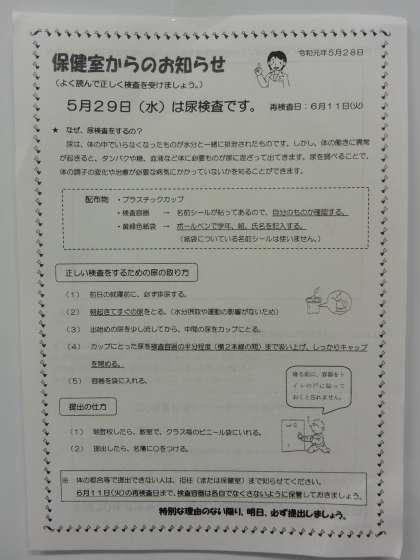 令和元年5月28日
保健室からのお知らせ
（よく読んで正しく検査を受けましょう。）
5月29日（水）は尿検査です。 再検査日：6月11日(火)
★ なぜ、尿検査をするの？
尿は、体の中でいらなくなったものが水分と一緒に排泄されたものです。しかし、体の働きに異常
が起きると、タンパクや糖、血液など体に必要なものが尿に混ざって出てきます。尿を調べることで、
体の調子の変化や治療が必要な病気にかかっていないかを知ることができます。
配布物 ・プラスチックカップ
・検査容器 → 名前シールが貼ってあるので、自分のものか確認する。
・黄緑色紙袋 → ボールペンで学年、組、氏名を記入する。
（紙袋についている名前シールは使いません。）
正しい検査をするための尿の取り方
（1） 前日の就寝前に、必ず排尿する。
（2） 朝起きてすぐの尿をとる。（水分摂取や運動の影響がないため）
（3） 出始めの尿を少し流してから、中間の尿をカップにとる。
（4） カップにとった尿を検査容器の半分程度（横2本線の間）まで吸い上げ、しっかりキャップ
を閉める。
（5） 容器を袋に入れる。
寝る前に、容器をト
イレの戸に貼って
おくと忘れません。
提出の仕方
（1） 朝登校したら、教室で、クラス毎のビニール袋にいれる。
（2） 提出したら、名簿に○をつける。
※ 体の都合等で提出できない人は、担任（または保健室）まで知らせてください。
6月11日(火)の再検査日まで、検査容器は各自でなくさないように保管しておきましょう。
特別な理由のない限り、明日、必ず提出しましょう。